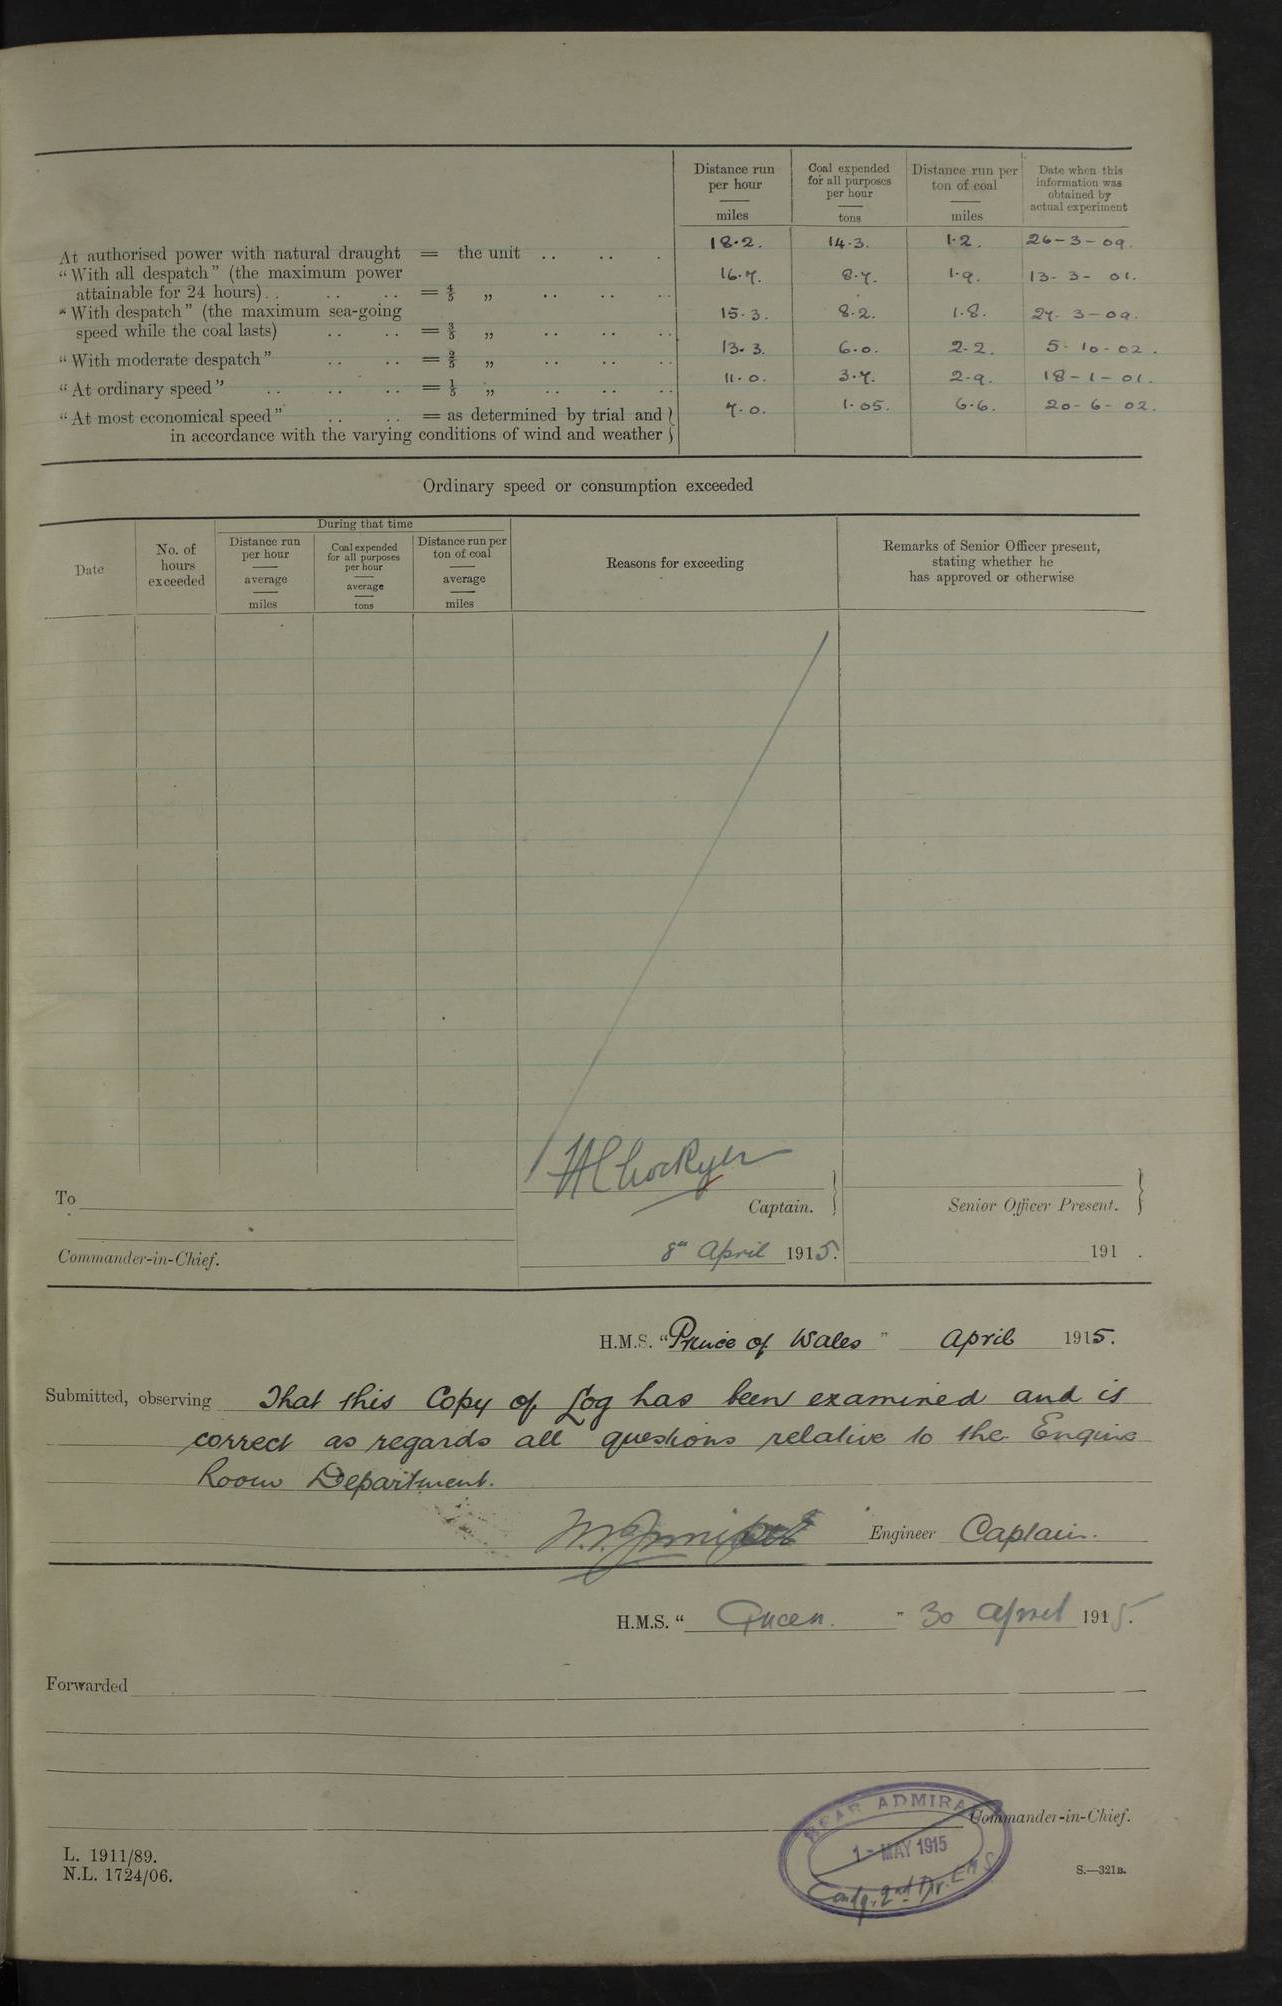 Distance run per hour miles
Coal expended for all purposes per hour tons
Distance run per ton of coal miles
Date when this information was obtained by actual experiment
At authorised power with natural draught = the unit .. .. . 18.2. 14.3. 1.2. 26-3-09.
"With all despatch" (the maximum power
attainable for 24 hours) .. .. .. = 4/5 „ .. .. .. 16.7. 8.7. 1.9. 13-3-01.
"With despatch" (the maximum sea-going
speed while the coal lasts) .. .. = 3/5 „ .. .. .. 15.3. 8.2. 1.8. 27-3-09.
"With moderate despatch" .. .. = 2/5 „ .. .. .. 13.3. 6.0. 2.2. 5-10-02.
"At ordinary speed" .. .. .. = 1/5 „ .. .. .. 11.0. 3.7. 2.9. 18-1-01.
"At most economical speed" .. .. = as determined by trial and } 7.0. 1.05. 6.6. 20-6-02.
in accordance with the varying conditions of wind and weather }
Ordinary speed or consumption exceeded
During that time
Date
No. of hours exceeded
Distance run per hour average miles
Coal expended for all purposes per hour average tons
Distance run per ton of coal average miles
Reasons for exceeding
Remarks of Senior Officer present, stating whether he has approved or otherwise
To
Captain. }
Senior Officer Present. }
Commander-in-Chief.
8th April 1915.
191 .
H.M.S. "Prince of Wales" April 1915.
Submitted, observing That this Copy of Log has been examined and is
correct as regards all questions relative to the Engine
Room Department.
Engineer Captain.
H.M.S. "Queen." 30 April 1915.
Forwarded
Commander-in-Chief.
REAR ADMIRAL
1 - MAY 1915
Comdg. 2nd Dv. E M S
L. 1911/89.
N.L. 1724/06.
S.—321B.